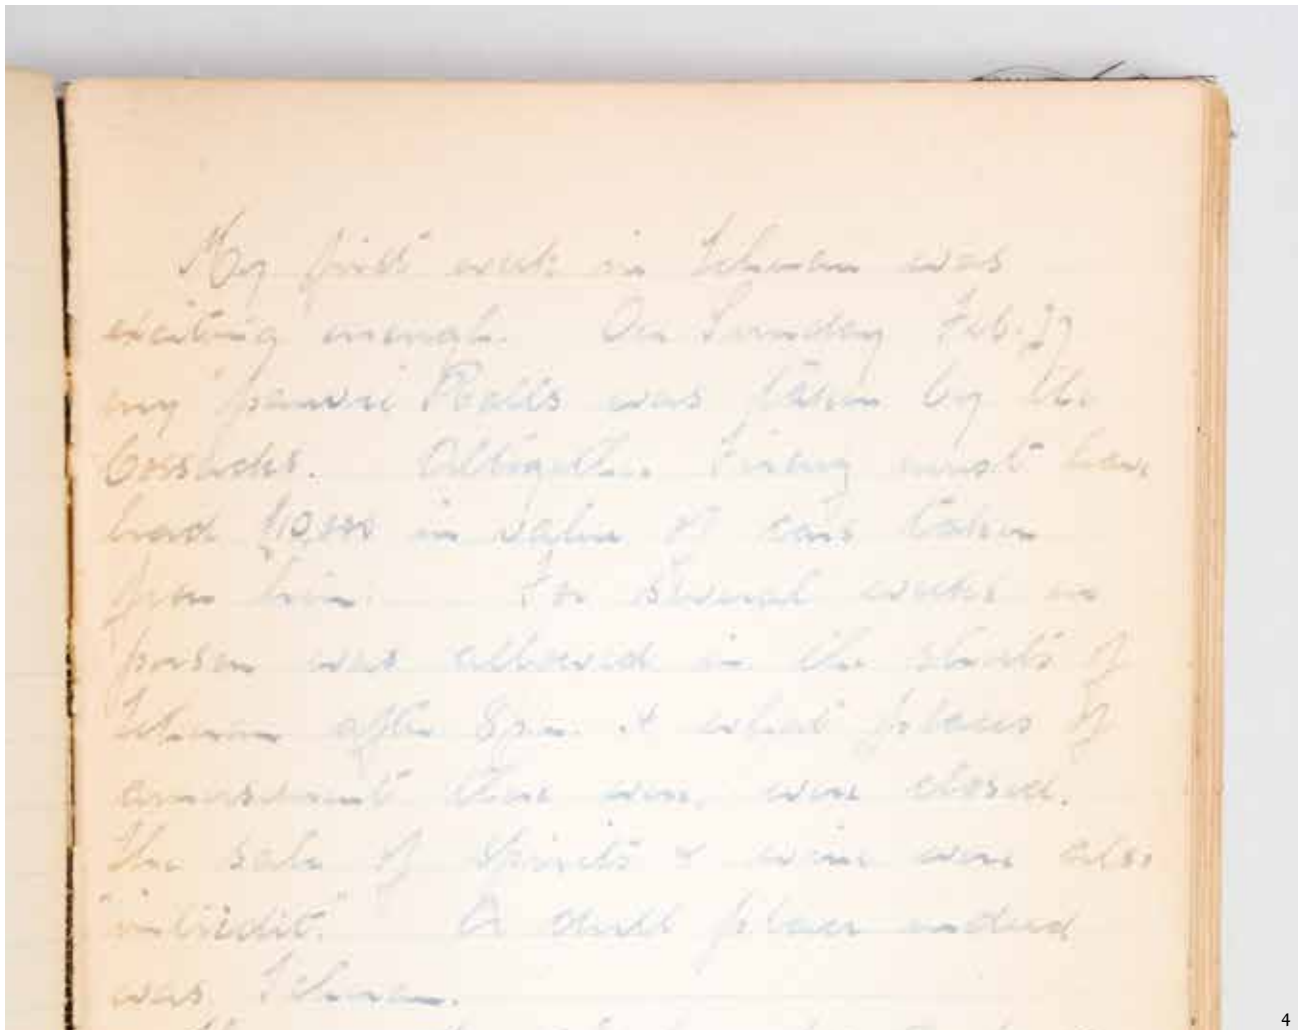 My first week in Teheran was
exciting enough. On Sunday Feb. 27
my Rolls was taken by the
Cossacks. Altogether must have
had in value of cars taken
from him. For several weeks no
person was allowed in the streets of
Teheran after 8pm & what places of
amusement there were, were closed.
The sale of spirits & wine were also
"interdit." A dull place indeed
was Teheran.
4